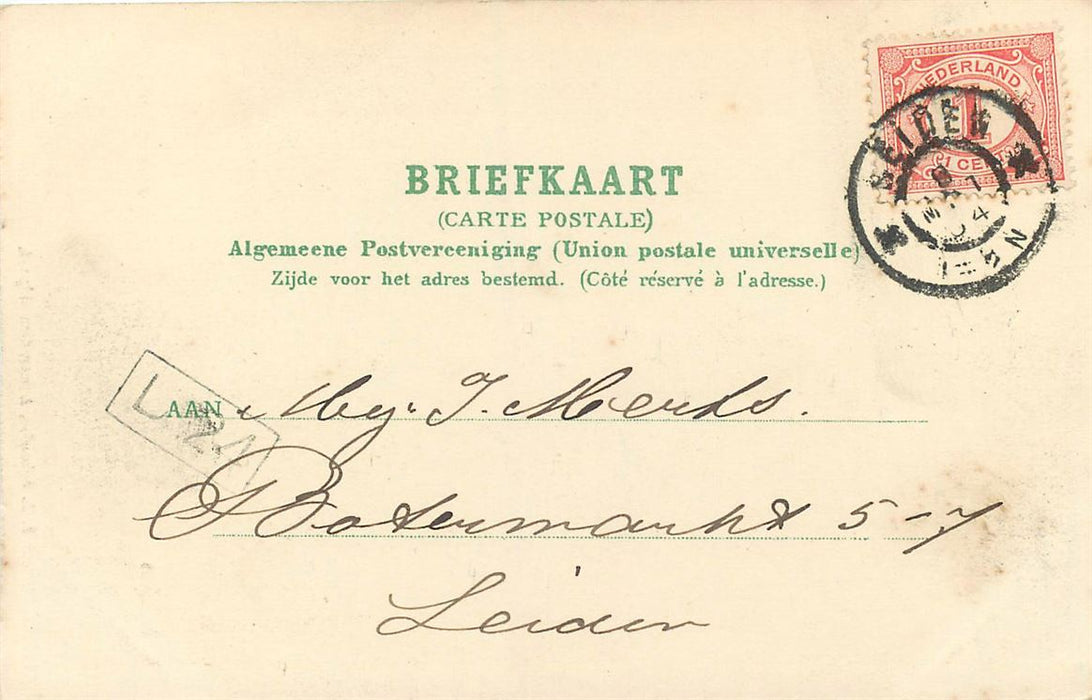 NEDERLAND
1
1 CENT
LEIDEN
BRIEFKAART
(CARTE POSTALE)
Algemeene Postvereeniging (Union postale universelle)
Zijde voor het adres bestemd. (Côté réservé à l'adresse.)
AAN Mej. J. Merks.
Botermarkt 5-7
Leiden